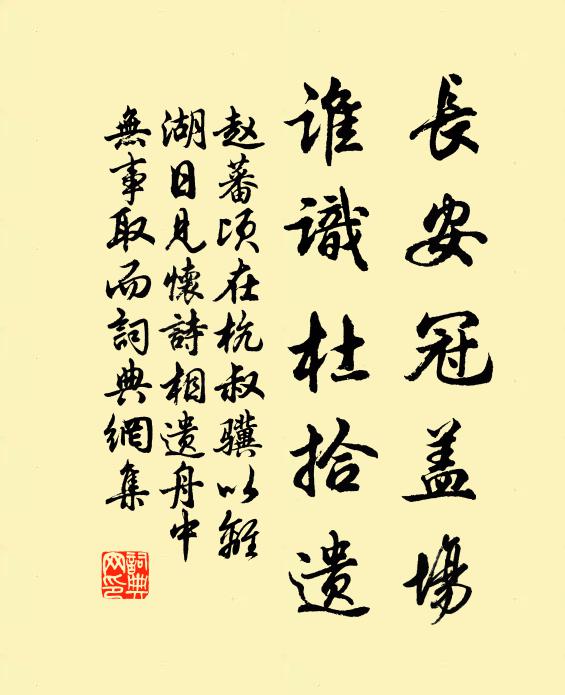 長安冠盖場
誰識杜拾遺
赵蕃頃在杭叔驥以離
湖日見懷詩相遺舟中
無事取而詞典網集
詞典
网印